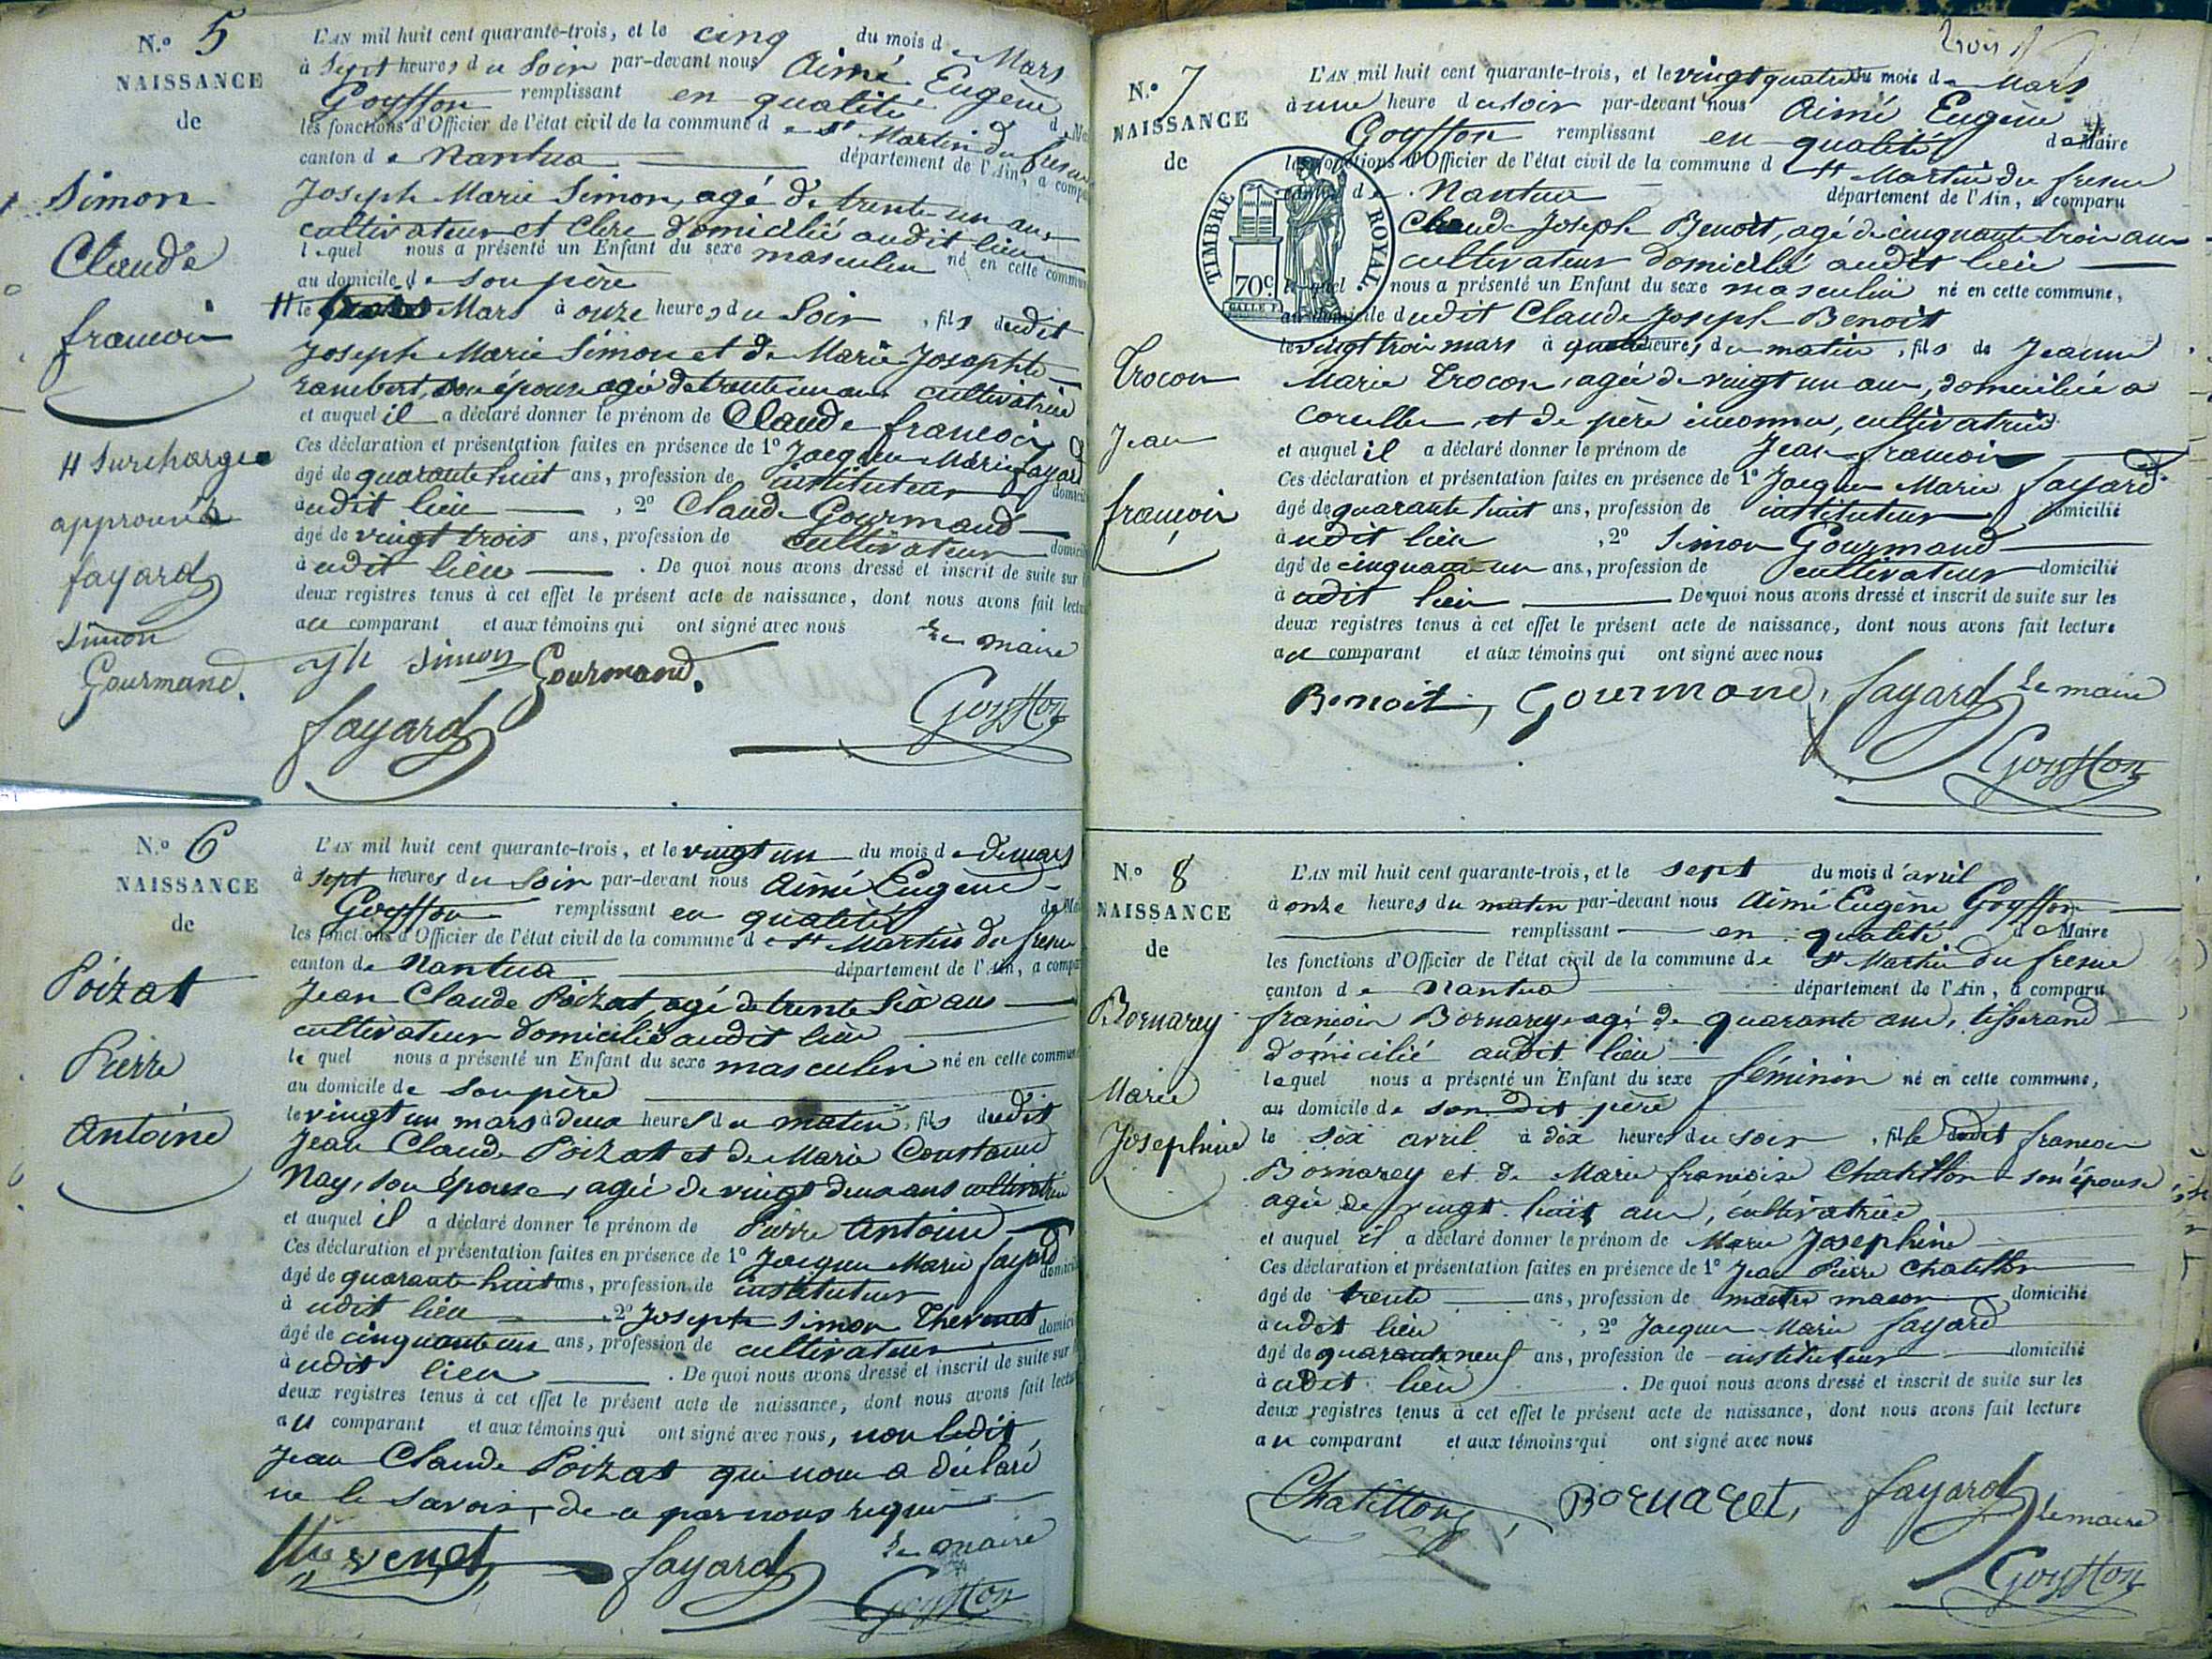 N.o 5
NAISSANCE
de
Simon
Claude
francois
H Surcharge
approuvée
fayard
Simon
Gourmand.
L'AN mil huit cent quarante-trois, et le cinq du mois de Mars
à Sept heures du Soir par-devant nous Aimé Eugène
Goyffon remplissant en qualité de
les fonctions d'Officier de l'état civil de la commune de St Martin du fresne
canton de Nantua département de l'Ain, a comparu
Joseph Marie Simon, agé de trente un ans
cultivateur et Clerc domicilié audit lieu
lequel nous a présenté un Enfant du sexe masculin né en cette commune
au domicile de son père
H le Mars à onze heures du Soir, fils dudit
Joseph Marie Simon et de Marie Josephte
rambert, son épouse agée de trente un ans cultivatrice
et auquel il a déclaré donner le prénom de Claude francois
Ces déclaration et présentation faites en présence de 1o Jacques Marie fayard
âgé de quarante huit ans, profession de instituteur domicilié
à udit lieu, 2o Claude Gourmand
âgé de vingt trois ans, profession de cultivateur domicilié
à udit lieu. De quoi nous avons dressé et inscrit de suite sur
deux registres tenus à cet effet le présent acte de naissance, dont nous avons fait lecture
au comparant et aux témoins qui ont signé avec nous
Le maire
jh Simon Gourmand.
fayard Goyffon
N.o 6
NAISSANCE
de
Poizat
Pierre
Antoine
L'AN mil huit cent quarante-trois, et le vingt un du mois de de mars
à sept heures du Soir par-devant nous Aimé Eugène
Goyffon remplissant en qualité de
les fonctions d'Officier de l'état civil de la commune de St Martin du fresne
canton de Nantua département de l'Ain, a comparu
Jean Claude Poizat, agé de trente six ans
cultivateur domicilié audit lieu
le quel nous a présenté un Enfant du sexe masculin né en cette commune
au domicile de son père
le vingt un mars à deux heures du matin, fils dudit
Jean Claude Poizat et de Marie Constance
Nay, son épouse, agée de vingt deux ans cultivatrice
et auquel il a déclaré donner le prénom de Pierre Antoine
Ces déclaration et présentation faites en présence de 1o Jacques Marie fayard
âgé de quarante huit ans, profession de instituteur domicilié
à udit lieu, 2o Joseph Simon Thevenet
âgé de cinquante un ans, profession de cultivateur domicilié
à udit lieu. De quoi nous avons dressé et inscrit de suite sur
deux registres tenus à cet effet le présent acte de naissance, dont nous avons fait lecture
au comparant et aux témoins qui ont signé avec nous, non ledit
Jean Claude Poizat qui nous a déclaré
ne le savoir, de ce par nous requis
Le maire
Thevenet fayard
Goyffon
trois
N.o 7
NAISSANCE
de
TIMBRE ROYAL
70c.
Trocon
Jean
françois
L'AN mil huit cent quarante-trois, et le vingt quatre du mois de Mars
à une heure du soir par-devant nous Aimé Eugène
Goyffon remplissant en qualité de Maire
les fonctions d'Officier de l'état civil de la commune d St Martin du fresne
canton de Nantua département de l'Ain, a comparu
Claude Joseph Benoit, agé de cinquante trois ans
cultivateur domicilié audit lieu
lequel nous a présenté un Enfant du sexe masculin né en cette commune,
au domicile dudit Claude Joseph Benoit
le vingt trois mars à heures du matin, fils de Jeanne
Marie Trocon, agée de vingt un ans, domiciliée a
et de père inconnu, cultivatrice
et auquel il a déclaré donner le prénom de Jean francois
Ces déclaration et présentation faites en présence de 1o Jacques Marie fayard
âgé de quarante huit ans, profession de instituteur domicilié
à udit lieu, 2o Simon Gourmand
âgé de cinquante un ans, profession de cultivateur domicilié
à udit lieu De quoi nous avons dressé et inscrit de suite sur les
deux registres tenus à cet effet le présent acte de naissance, dont nous avons fait lecture
au comparant et aux témoins qui ont signé avec nous
Benoit, Gourmand, fayard Le maire
Goyffon
N.o 8
NAISSANCE
de
Bornarey
Marie
Josephine
L'AN mil huit cent quarante-trois, et le sept du mois d'avril
à onze heures du matin par-devant nous Aimé Eugène Goyffon
remplissant en qualité de Maire
les fonctions d'Officier de l'état civil de la commune de St Martin du fresne
canton de Nantua département de l'Ain, a comparu
françois Bornarey, agé de quarante ans, tisserand
domicilié audit lieu
lequel nous a présenté un Enfant du sexe féminin né en cette commune,
au domicile de son dit père
le six avril à dix heures du soir, fille dudit francois
Bornarey et de Marie francoise Chatillon son épouse
agée de vingt huit ans, cultivatrice
et auquel il a déclaré donner le prénom de Marie Josephine
Ces déclaration et présentation faites en présence de 1o Jean Pierre Chatillon
âgé de trente ans, profession de maitre macon domicilié
à udit lieu, 2o Jacques Marie fayard
âgé de quarante neuf ans, profession de instituteur domicilié
à udit lieu. De quoi nous avons dressé et inscrit de suite sur les
deux registres tenus à cet effet le présent acte de naissance, dont nous avons fait lecture
au comparant et aux témoins qui ont signé avec nous
Chatillon, Bornaret, fayard Le maire
Goyffon